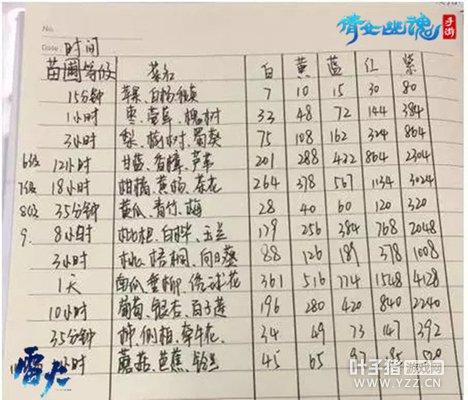 倩女幽魂 手游
No.
Date 时间
苗圃等级 白 黄 蓝 红 紫
15分钟 苹果、白杨 7 10 15 30 80
1小时 枣、槐树 33 48 72 144 384
3小时 梨、树、蜀葵 75 108 162 324 864
6级 12小时 甘蓝、香樟、芦苇 201 288 432 864 2304
7级 18小时 柑橘、黄杨、茶花 264 378 567 1134 3024
8级 35分钟 黄瓜、青竹、梅 28 40 60 120 320
9. 8小时 枇杷、白桦、玉兰 179 256 384 768 2048
3小时 桃、梧桐、向日葵 88 126 189 378 1008
1天 南瓜、垂柳、绣球花 361 516 774 1548 4128
10小时 葡萄、银杏、百子莲 196 280 420 840 2240
35分钟 柿、侧柏、牵牛花 34 49 73 147 392
小时 蘑菇、芭蕉、铃兰 45 65 97 520
雷火
叶子猪游戏网
WWW.YZZ.CN